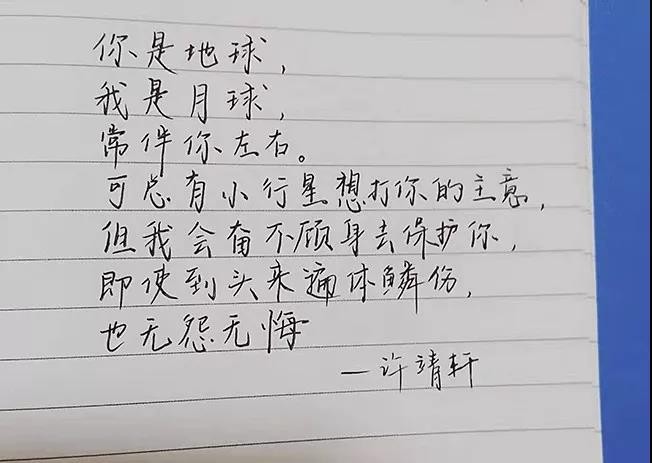 你是地球，
我是月球，
常伴你左右。
可总有小行星想打你的主意，
但我会奋不顾身去保护你，
即使到头来遍体鳞伤，
也无怨无悔
—许靖轩